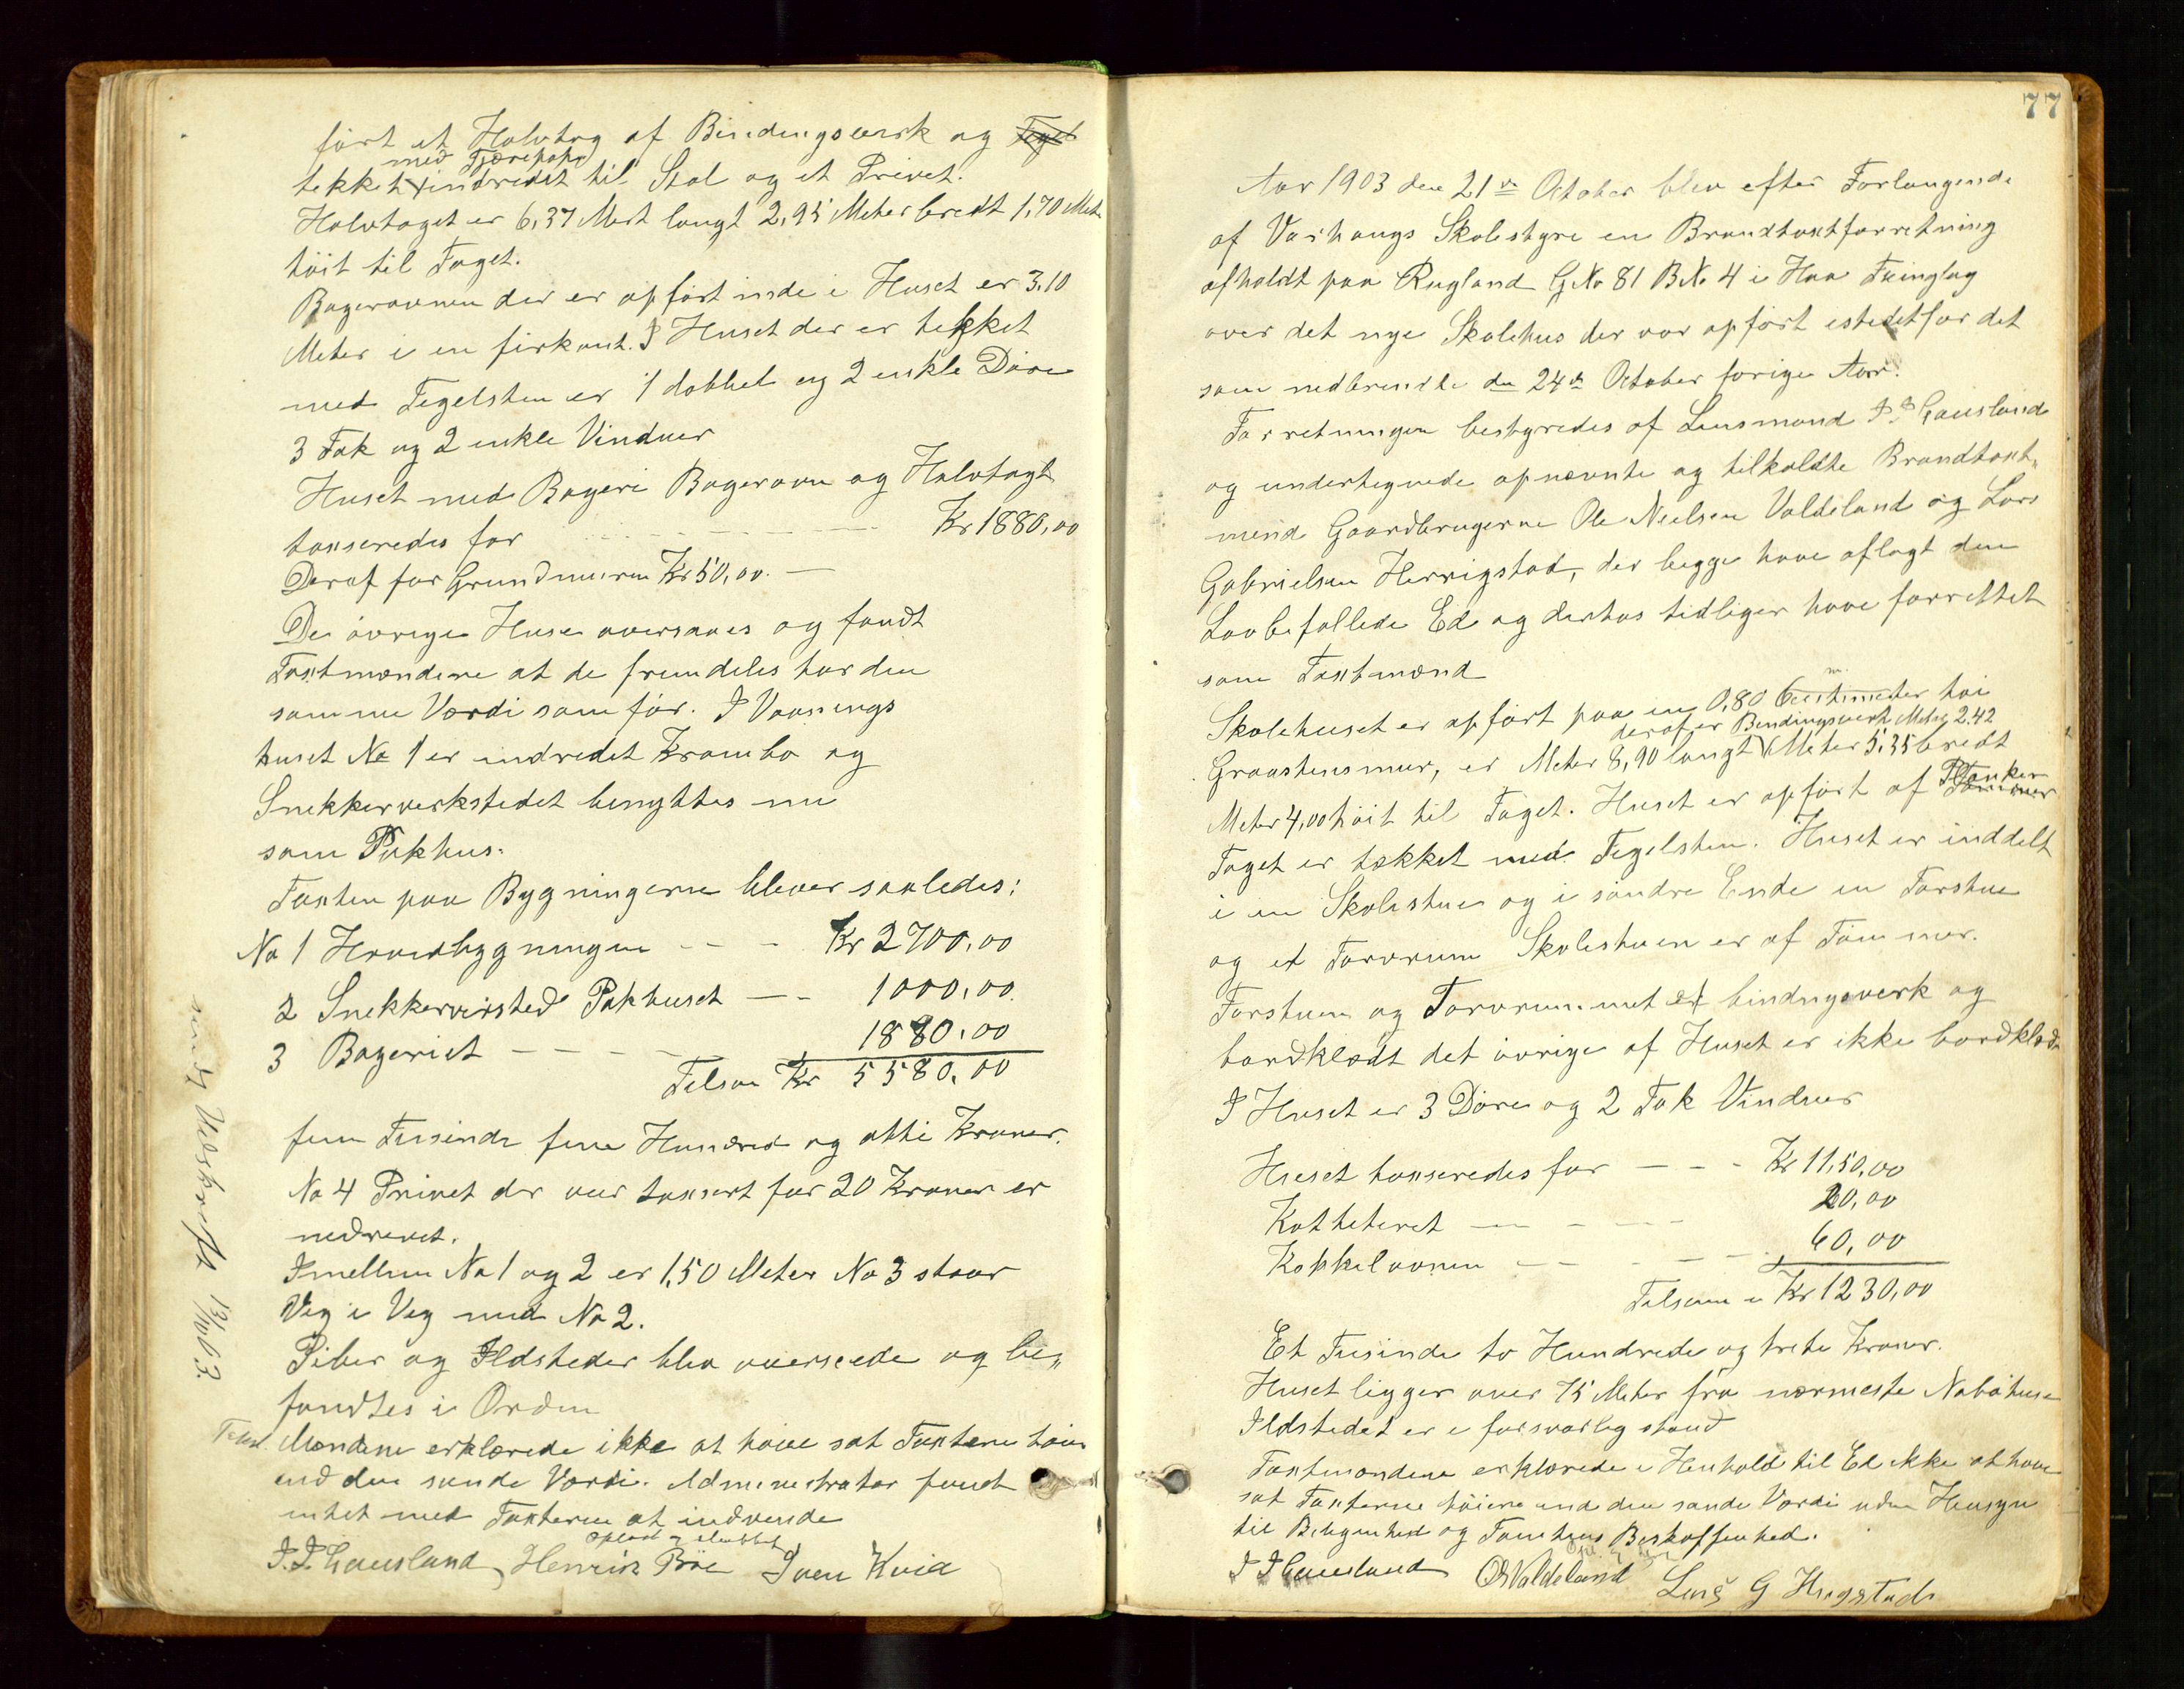 ført et Halvtag af Bindingsverk og Tegel
med Tjærepap
tekket indredet til Stal og et Privet.
Halvtaget er 6,37 Met langt 2,95 Meter bredt 1,70 Met
høit til Taget.
Bagerovnen der er opført inde i Huset er 3,10
Meter i en firkant. I Huset der er tekket
med Tegelsten er 1 dobbel og 2 enkle Døre
3 Fak og 2 enkle Vinduer
Huset med Bageri Bagerovn og Halvtagt
taxseredes for Kr 1880,00
Deraf for Grundmuren Kr 50,00. —
De øvrige Huse oversaaes og fandt
Taxtmændene at de fremdeles har den
samme Værdi som før. I Vaanings
huset No 1 er indredet Krambo og
Snekkerverkstedet benyttes nu
som Pakhus.
Taxten paa Bygningerne blever saaledes:
No 1 Hovedbygningen - - - Kr 2700,00
2 Snekkerversted Pakhuset — - 1000,00.
3 Bageriet — — — — — 1880,00
Tilsam Kr 5580,00
fem Tusinde fem Hundred og otti Kroner.
No 4 Privet der var taxsert for 20 Kroner er
nedrevet.
Imellem No 1 og 2 er 1,50 Meter No 3 staar
Veg i Veg med No 2.
Piber og Ildsteder blev overseede og be„
fandtes i Orden
Mændene erklærede ikke at have sat Taxtene høie
end den sande Værdi. Administrator fandt
intet med Taxterne at indvende
oplæst
J. J. Gausland, Henrik Böe Sven Kvia
sendt Udskrift 13/10 03.
77
Aar 1903 den 21de October blev efter Forlangende
af Varhaugs Skolestyre en Brandtaxtforretning
afholdt paa Rugland G No 81 B No 4 i Haa Tinglag
over det nye Skolehus der var opført istedetfor det
som nedbrendte den 24de October forige Aar.
Forretningen bestyredes af Lensmand J. J. Gausland
og undertegnede opnævnte og tilkaldte Brandtaxt„
mend Gaardbrugerne Ole Nielsen Valdeland og Lars
Gabrielsen Herrigstad, der begge have aflagt den
Lovbefallede Ed og derhos tidliger have forrettet
som Taxtmænd
m.
Skolehuset er opført paa en 0,80 Centimeter høi
deraf er Bindingsverk Meter 2.42
Graastensmur, er Meter 8,90 langt Meter 5,35 bredt
Meter 4,00 høit til Taget. Huset er opført af Tømmer Planker
Taget er tækket med Tegelsten. Huset er inddelt
i en Skolestue og i søndre Ende en Forstue
og et Torvrum Skolestuen er af Tømmer.
Forstuen og Torvrummet et bindingsverk og
bordklædt det øvrige af Huset er ikke bordklæd
I Huset er 3 Døre og 2 Fak Vinduer
Huset taxseredes for — — - Kr 1150,00
Kattheteret — — — — 20,00
Kakkelovnen — — — — — 60,00
Tilsam Kr 1230,00
Et Tusinde to Hundrede og treti Kroner.
Huset ligger over 75 Meter fra nærmeste Nabohuse
Ildstedet er i forsvarlig stand
Taxtmændene erklærede i Henhold til Ed ikke at have
sat Taxterne høiere end den sande Værdi uden Hensyn
til Beligenhed og Tomtens Beskaffenhed.
J J Gausland O N Valdeland Lars G Herigstad